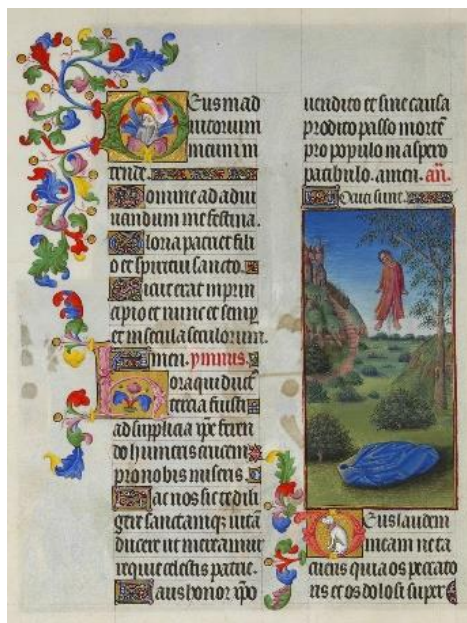 Deus in ad
iutorium
meum in
tende.
Domine ad adiu
uandum me festina.
Gloria patri et fili
o et spiritui sancto.
Sicut erat in prin
cipio et nunc et semp̄
et in secula seculorum.
Amen. ymnus.
Hora qui duct̄
tercia fuisti
ad suplicia xp̄e feren
do humeris crucem
pro nobis miseris.
Fac nos sic te dili
gere sanctamq; uitā
ducere ut mereamur
requie celestis patrie.
Laus honor xp̄o
uendito et sine causa
prodito passo mortē
pro populo in aspero
patibulo. amen. an̄.
sunt.
Deus laudem
meam ne ta
cueris quia os peccato
ris et os dolosi super